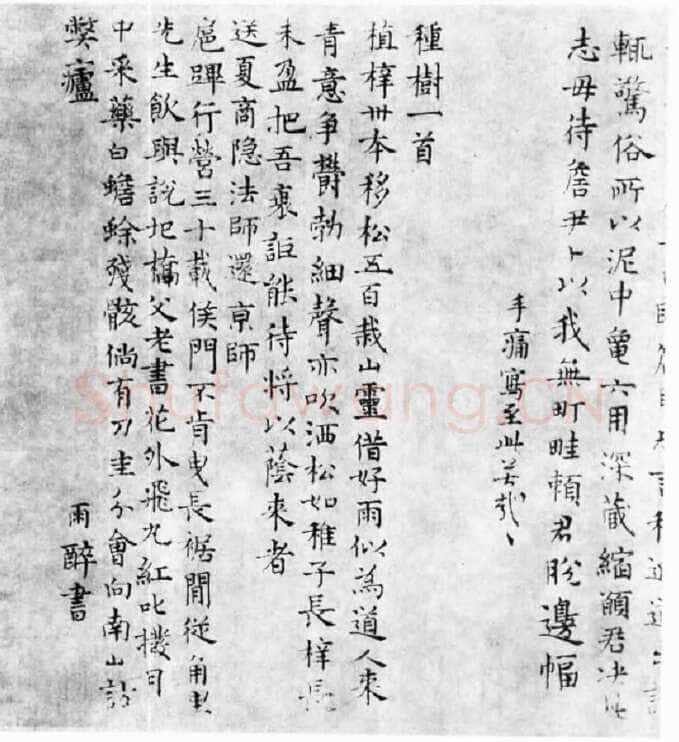 輒驚俗所以泥中龜六用深藏縮願君决此
志毋待詹尹卜以我無町畦頼君盼邊幅
手痛寫至此苦哉〻
種樹一首
植梓卅本移松五百栽山靈借好雨似為道人来
青意争欝勃細聲亦吹洒松如稚子長梓長
未盈把吾衰詎能待将以蔭来者
送夏商隐法師還京師
扈蹕行營三十載侯門不肯曳長裾閒從角里
先生飲與說圯橋父老書花外飛丸紅叱撥月
中采藥白蟾蜍殘骸倘有刀圭分會向南山訪
弊廬
雨醉書
Shufawang.CN